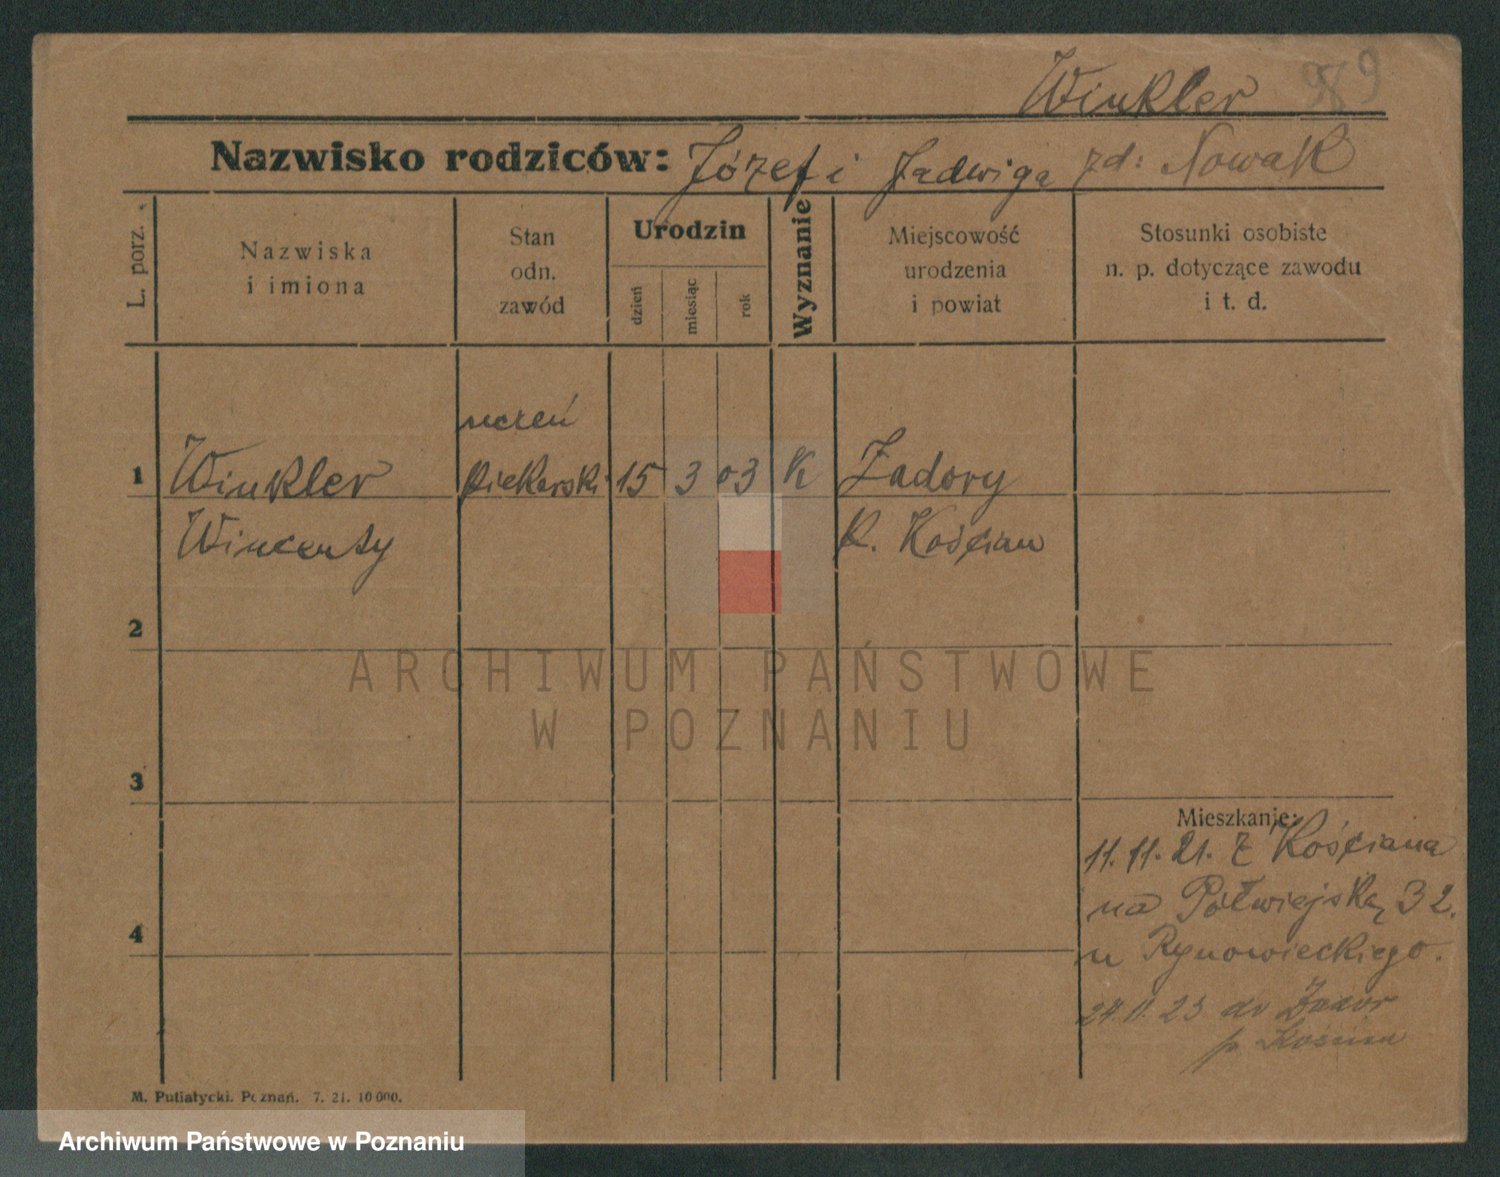 Winkler 989
Nazwisko rodziców: Józef i Jadwiga zd: Nowak
L. porz.
Nazwiska
i imiona
Stan
odn.
zawód
Urodzin
dzień
miesiąc
rok
Wyznanie
Miejscowość
urodzenia
i powiat
Stosunki osobiste
n. p. dotyczące zawodu
i t. d.
uczeń
1 Winkler piekarski 15 3 03 K Zadory
Wincenty p. Kościan
2
3
4
Mieszkanie:
11. 11. 21. z Kościana
na Półwiejską 32.
u Rynowieckiego.
24. 11. 23 do Zador
p. Kościan
M. Putiatycki. Poznań. 7. 21. 10 000.
ARCHIWUM PAŃSTWOWE
W POZNANIU
Archiwum Państwowe w Poznaniu